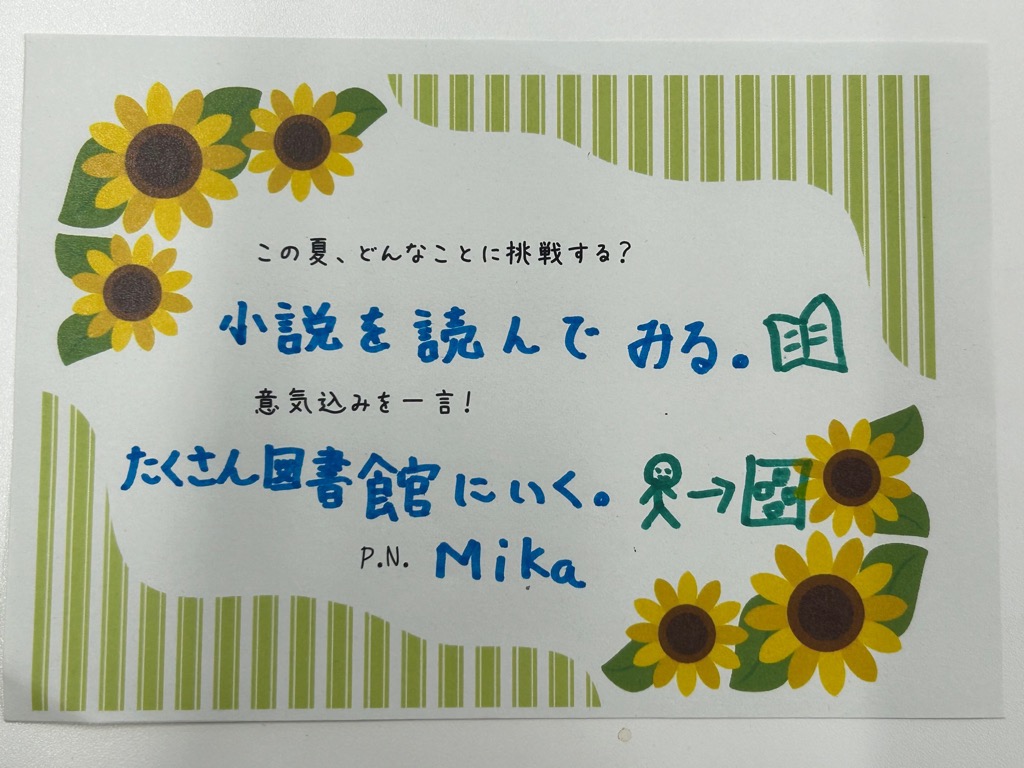 この夏、どんなことに挑戦する?
小説を読んでみる。
意気込みを一言!
たくさん図書館にいく。
P.N. Mika